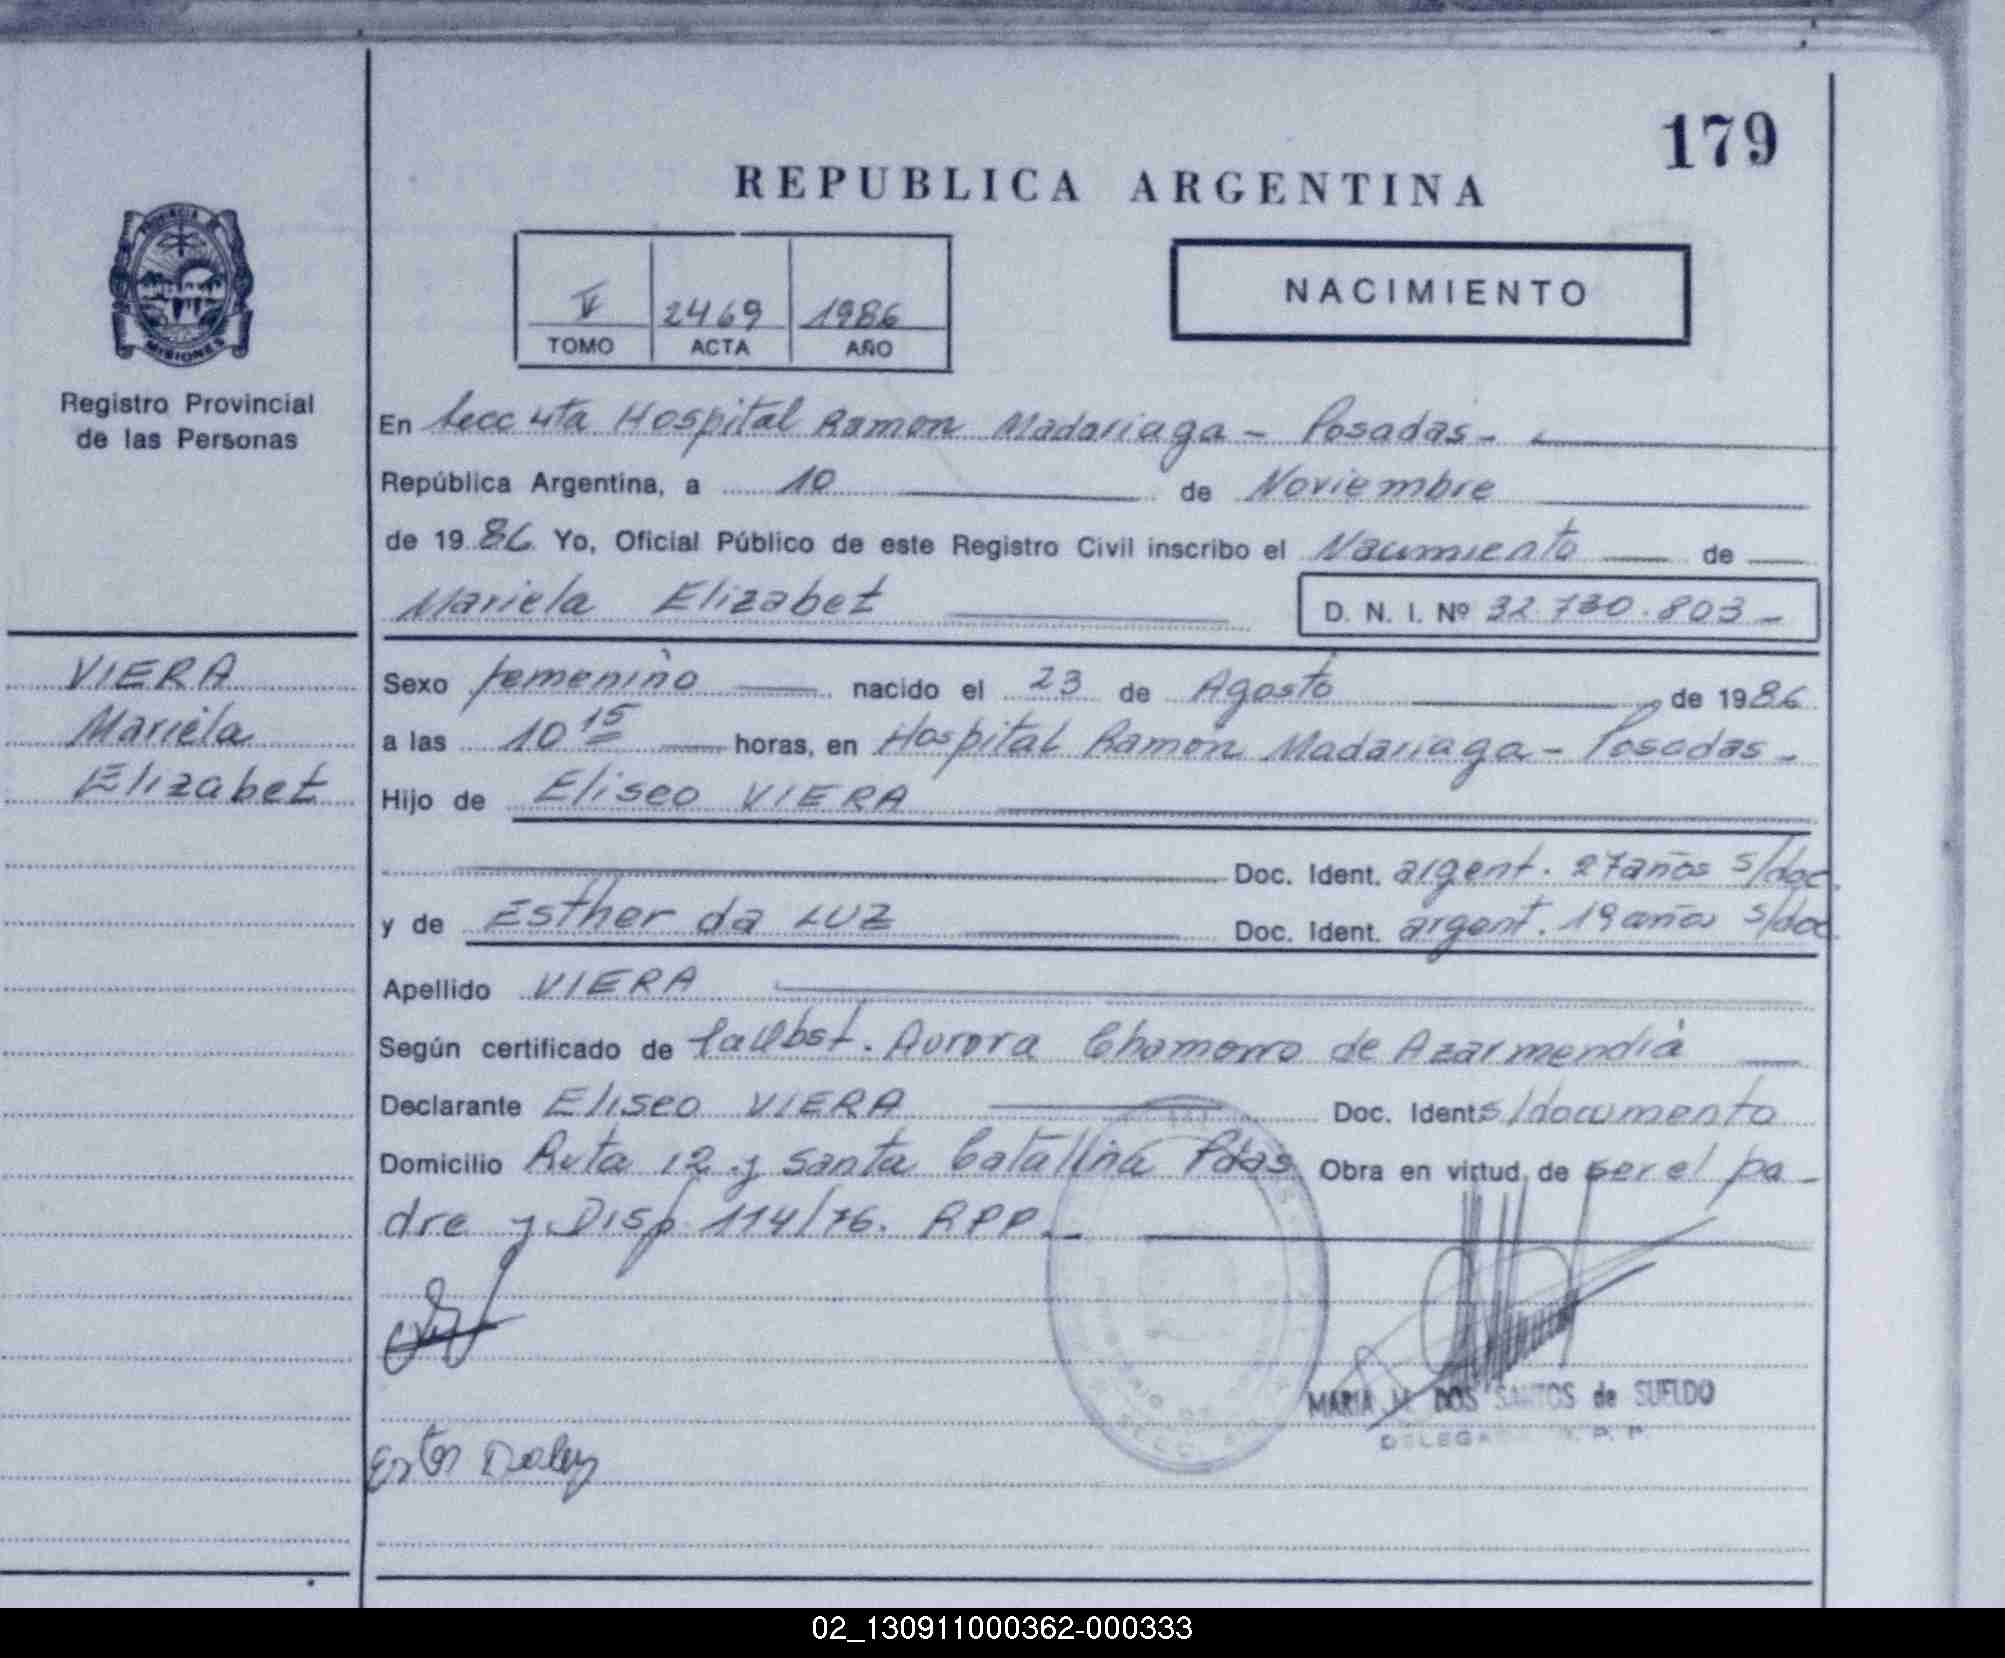 179
REPUBLICA ARGENTINA
PROVINCIA
MISIONES
Registro Provincial
de las Personas
V 2469 1986
TOMO ACTA AÑO
NACIMIENTO
En Secc 4ta Hospital Ramon Madariaga - Posadas -
República Argentina, a 10 de Noviembre
de 1986 Yo, Oficial Público de este Registro Civil inscribo el Nacimiento de
Mariela Elizabet D. N. I. Nº 32 730.803 -
VIERA
Mariela
Elizabet
Sexo femenino nacido el 23 de Agosto de 1986
a las 10 15 horas, en Hospital Ramon Madariaga - Posadas -
Hijo de Eliseo VIERA
Doc. Ident. argent. 27 años s/doc.
y de Esther da LUZ Doc. Ident. argent. 19 años s/doc.
Apellido VIERA
Según certificado de la Obst. Aurora Chamorro de Azarmendia
Declarante Eliseo VIERA Doc. Ident. s/documento
Domicilio Ruta 12 y Santa Catalina Pdas Obra en virtud de ser el pa-
dre y Disp. 114/76. RPP.
MARIA M. DOS SANTOS de SUELDO
02_130911000362-000333